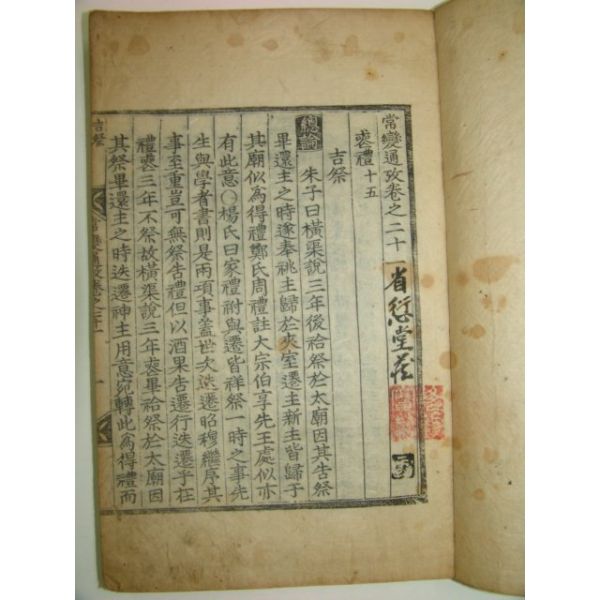 常變通攷卷之二十一
省愆堂藏
喪禮十五
吉祭
總論 朱子曰橫渠說三年後祫祭於太廟因其告祭
畢還主之時遂奉祧主歸於夾室遷主新主皆歸于
其廟似為得禮鄭氏周禮註大宗伯享先王處似亦
有此意〇楊氏曰家禮祔與遷皆祥祭一時之事先
生與學者書則是兩項事蓋世次迭遷昭穆繼序其
事至重豈可無祭告禮但以酒果告遷行迭遷乎在
禮喪三年不祭故橫渠說三年喪畢祫祭於太廟因
其祭畢還主之時迭遷神主用意宛轉此為得禮而
吉祭
常變通攷卷之二十一
一